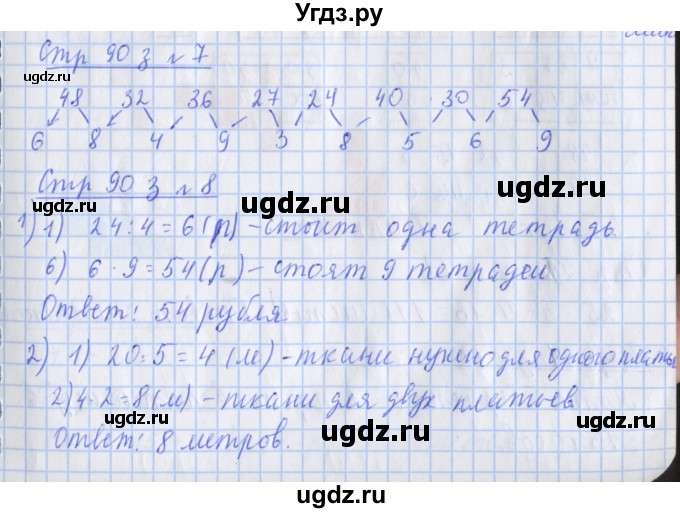 Угдз.ру
Стр 90 з №7
48 32 36 27 24 40 30 54
6 8 4 9 3 8 5 6 9
Стр 90 з №8
1) 1) 24:4=6(р) – стоит одна тетрадь.
6) 6·9=54(р) – стоят 9 тетрадей
Ответ: 54 рубля.
2) 1) 20:5=4(м) – ткани нужно для одного платья
2) 4·2=8(м) – ткани для двух платьев
Ответ: 8 метров.
ugdz.ru
ugdz.ru
ugdz.ru
ugdz.ru
ugdz.ru
ugdz.ru
ugdz.ru
ugdz.ru
ugdz.ru
ugdz.ru
ugdz.ru